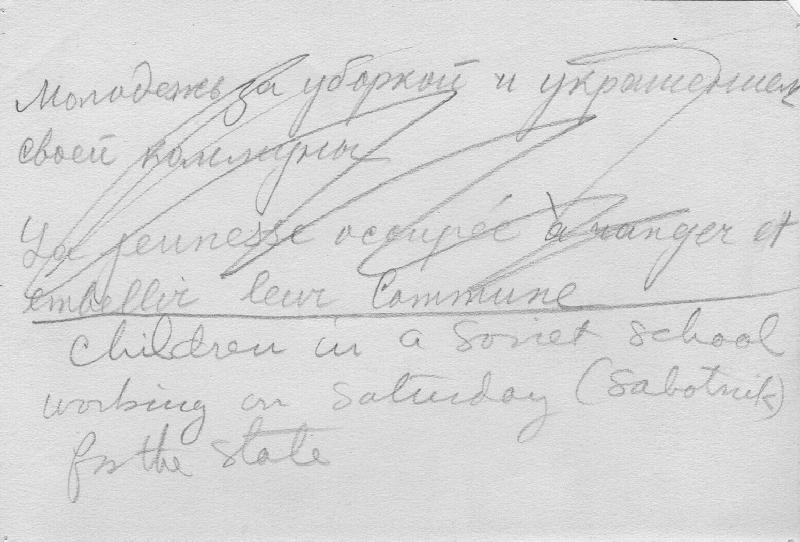 Молодежь за уборкой и украшением
своей коммуны
La jeunesse occupée à ranger et
embellir leur Commune
Children in a Soviet school
working on Saturday (Sabotnik)
for the State